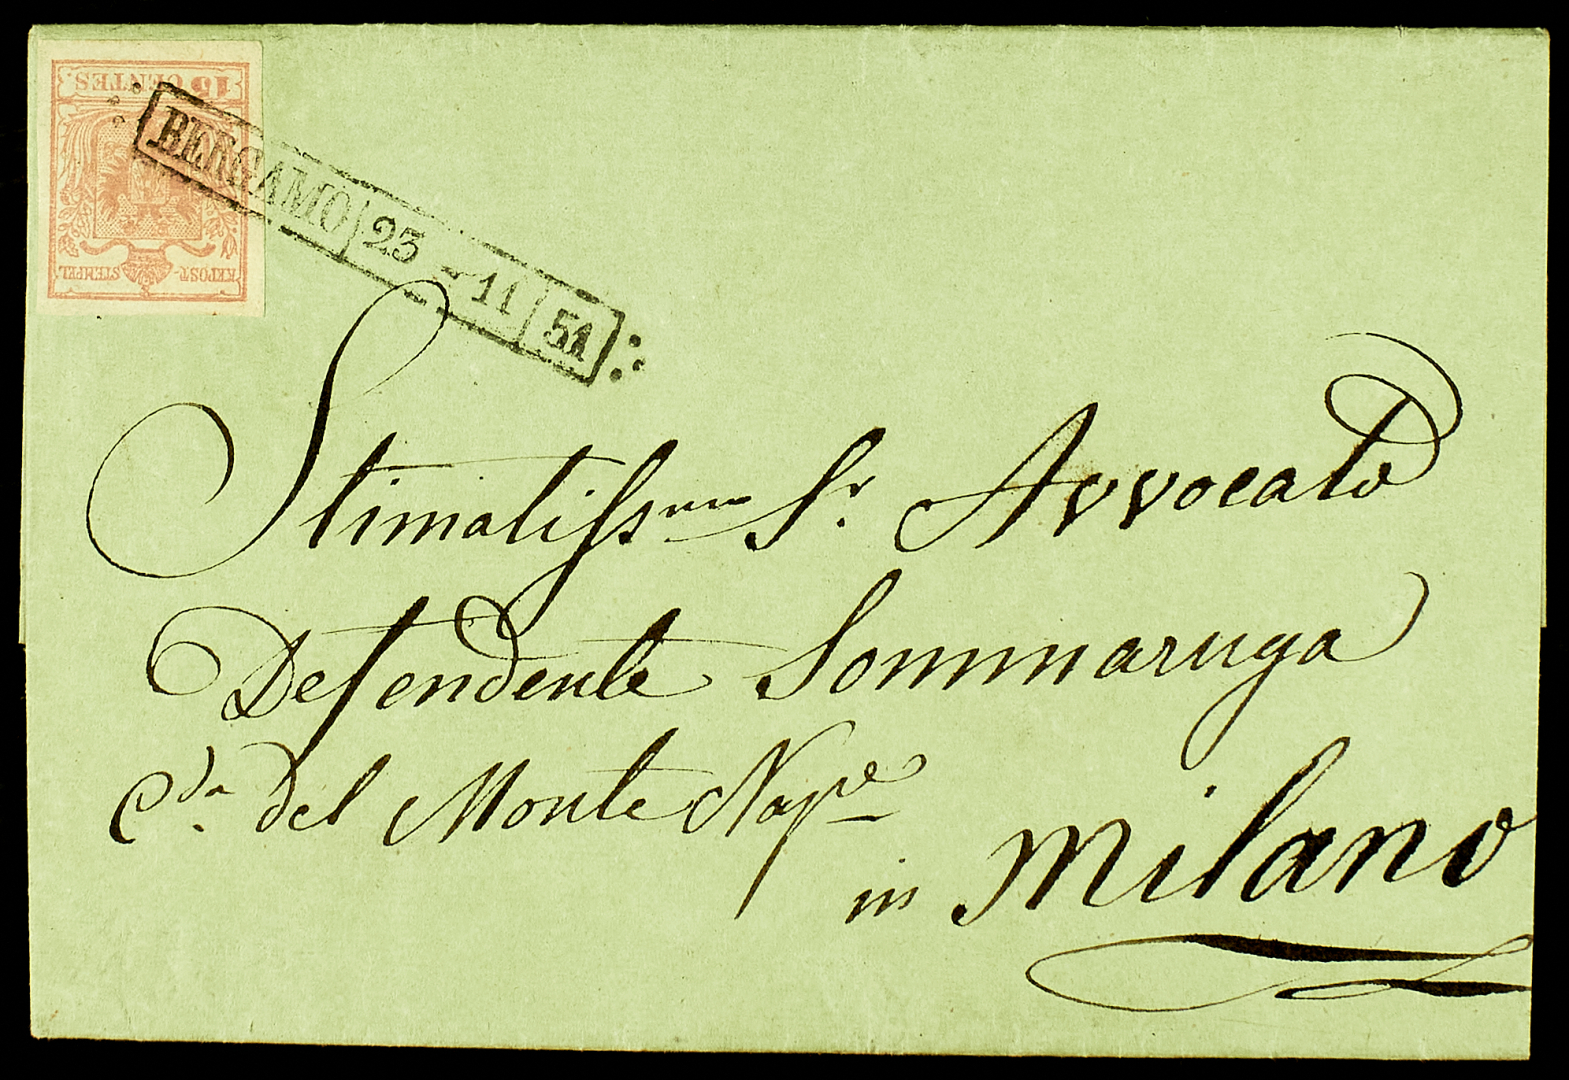 15 CENTES.
KKPOST-STEMPEL
BERGAMO 23 - 11 51
Stimatissmo Sr. Avvocato
Defendente Sommaruga
Cda. del Monte Nape
in Milano